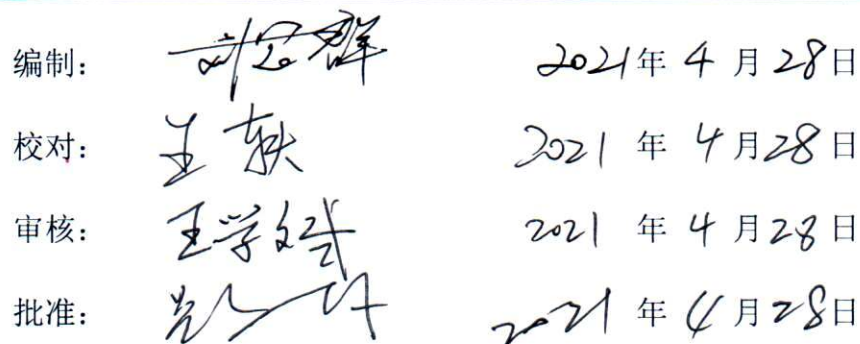 编制: 刘忠群 2021年4月28日
校对: 王轶 2021年4月28日
审核: 王学斌 2021年4月28日
批准: 2021年4月28日